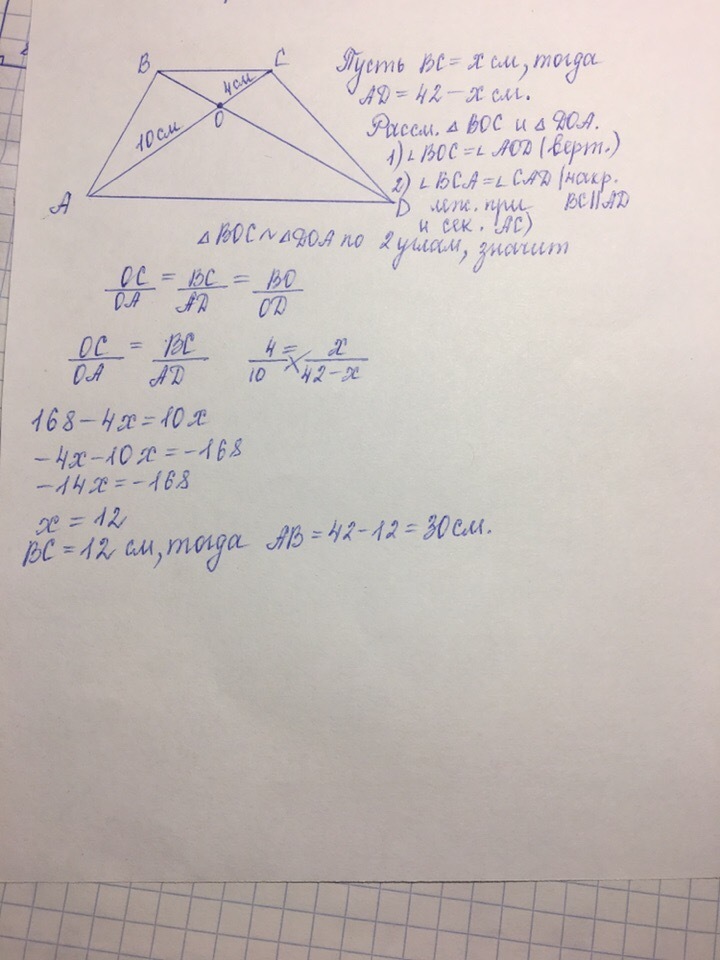 B
C
4см
O
10см
A
D
Пусть BC = x см, тогда
AD = 42 - x см.
Рассм. △ BOC и △ DOA.
1) ∠BOC = ∠ AOD (верт.)
2) ∠BCA = ∠CAD (накр.
леж. при BC∥AD
и сек. AC)
△BOC ~ △DOA по 2 углам, значит
OC/OA = BC/AD = BO/OD
OC/OA = BC/AD 4/10 = x/42-x
168 - 4x = 10x
-4x - 10x = -168
-14x = -168
x = 12
BC = 12 см, тогда AB = 42 - 12 = 30 см.